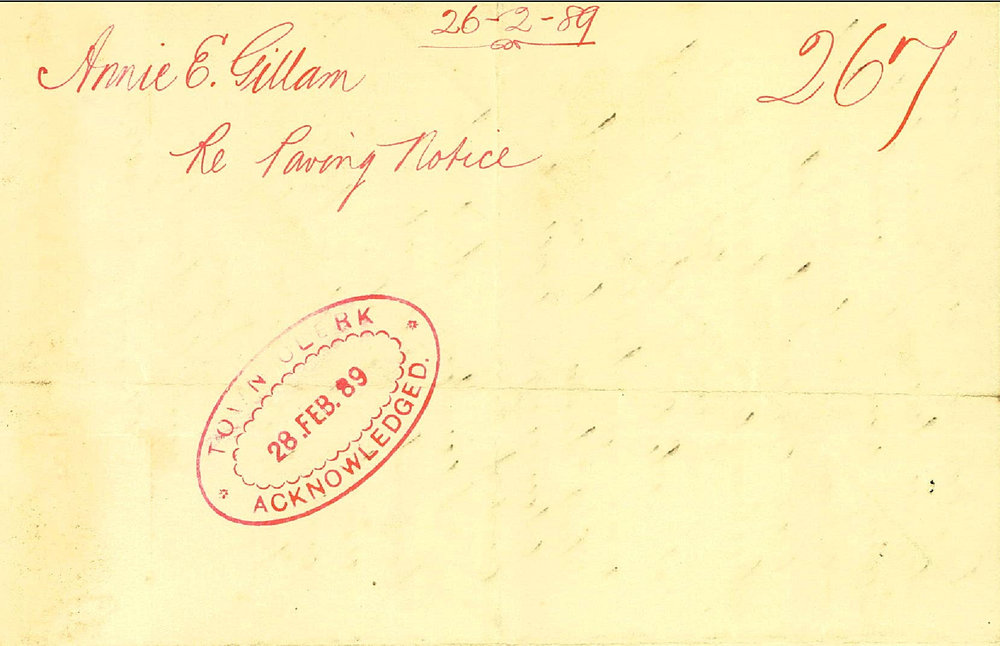 26-2-89
Annie E. Gillam
267
Re Paving Notice
TOWN CLERK
28.FEB.89
ACKNOWLEDGED.